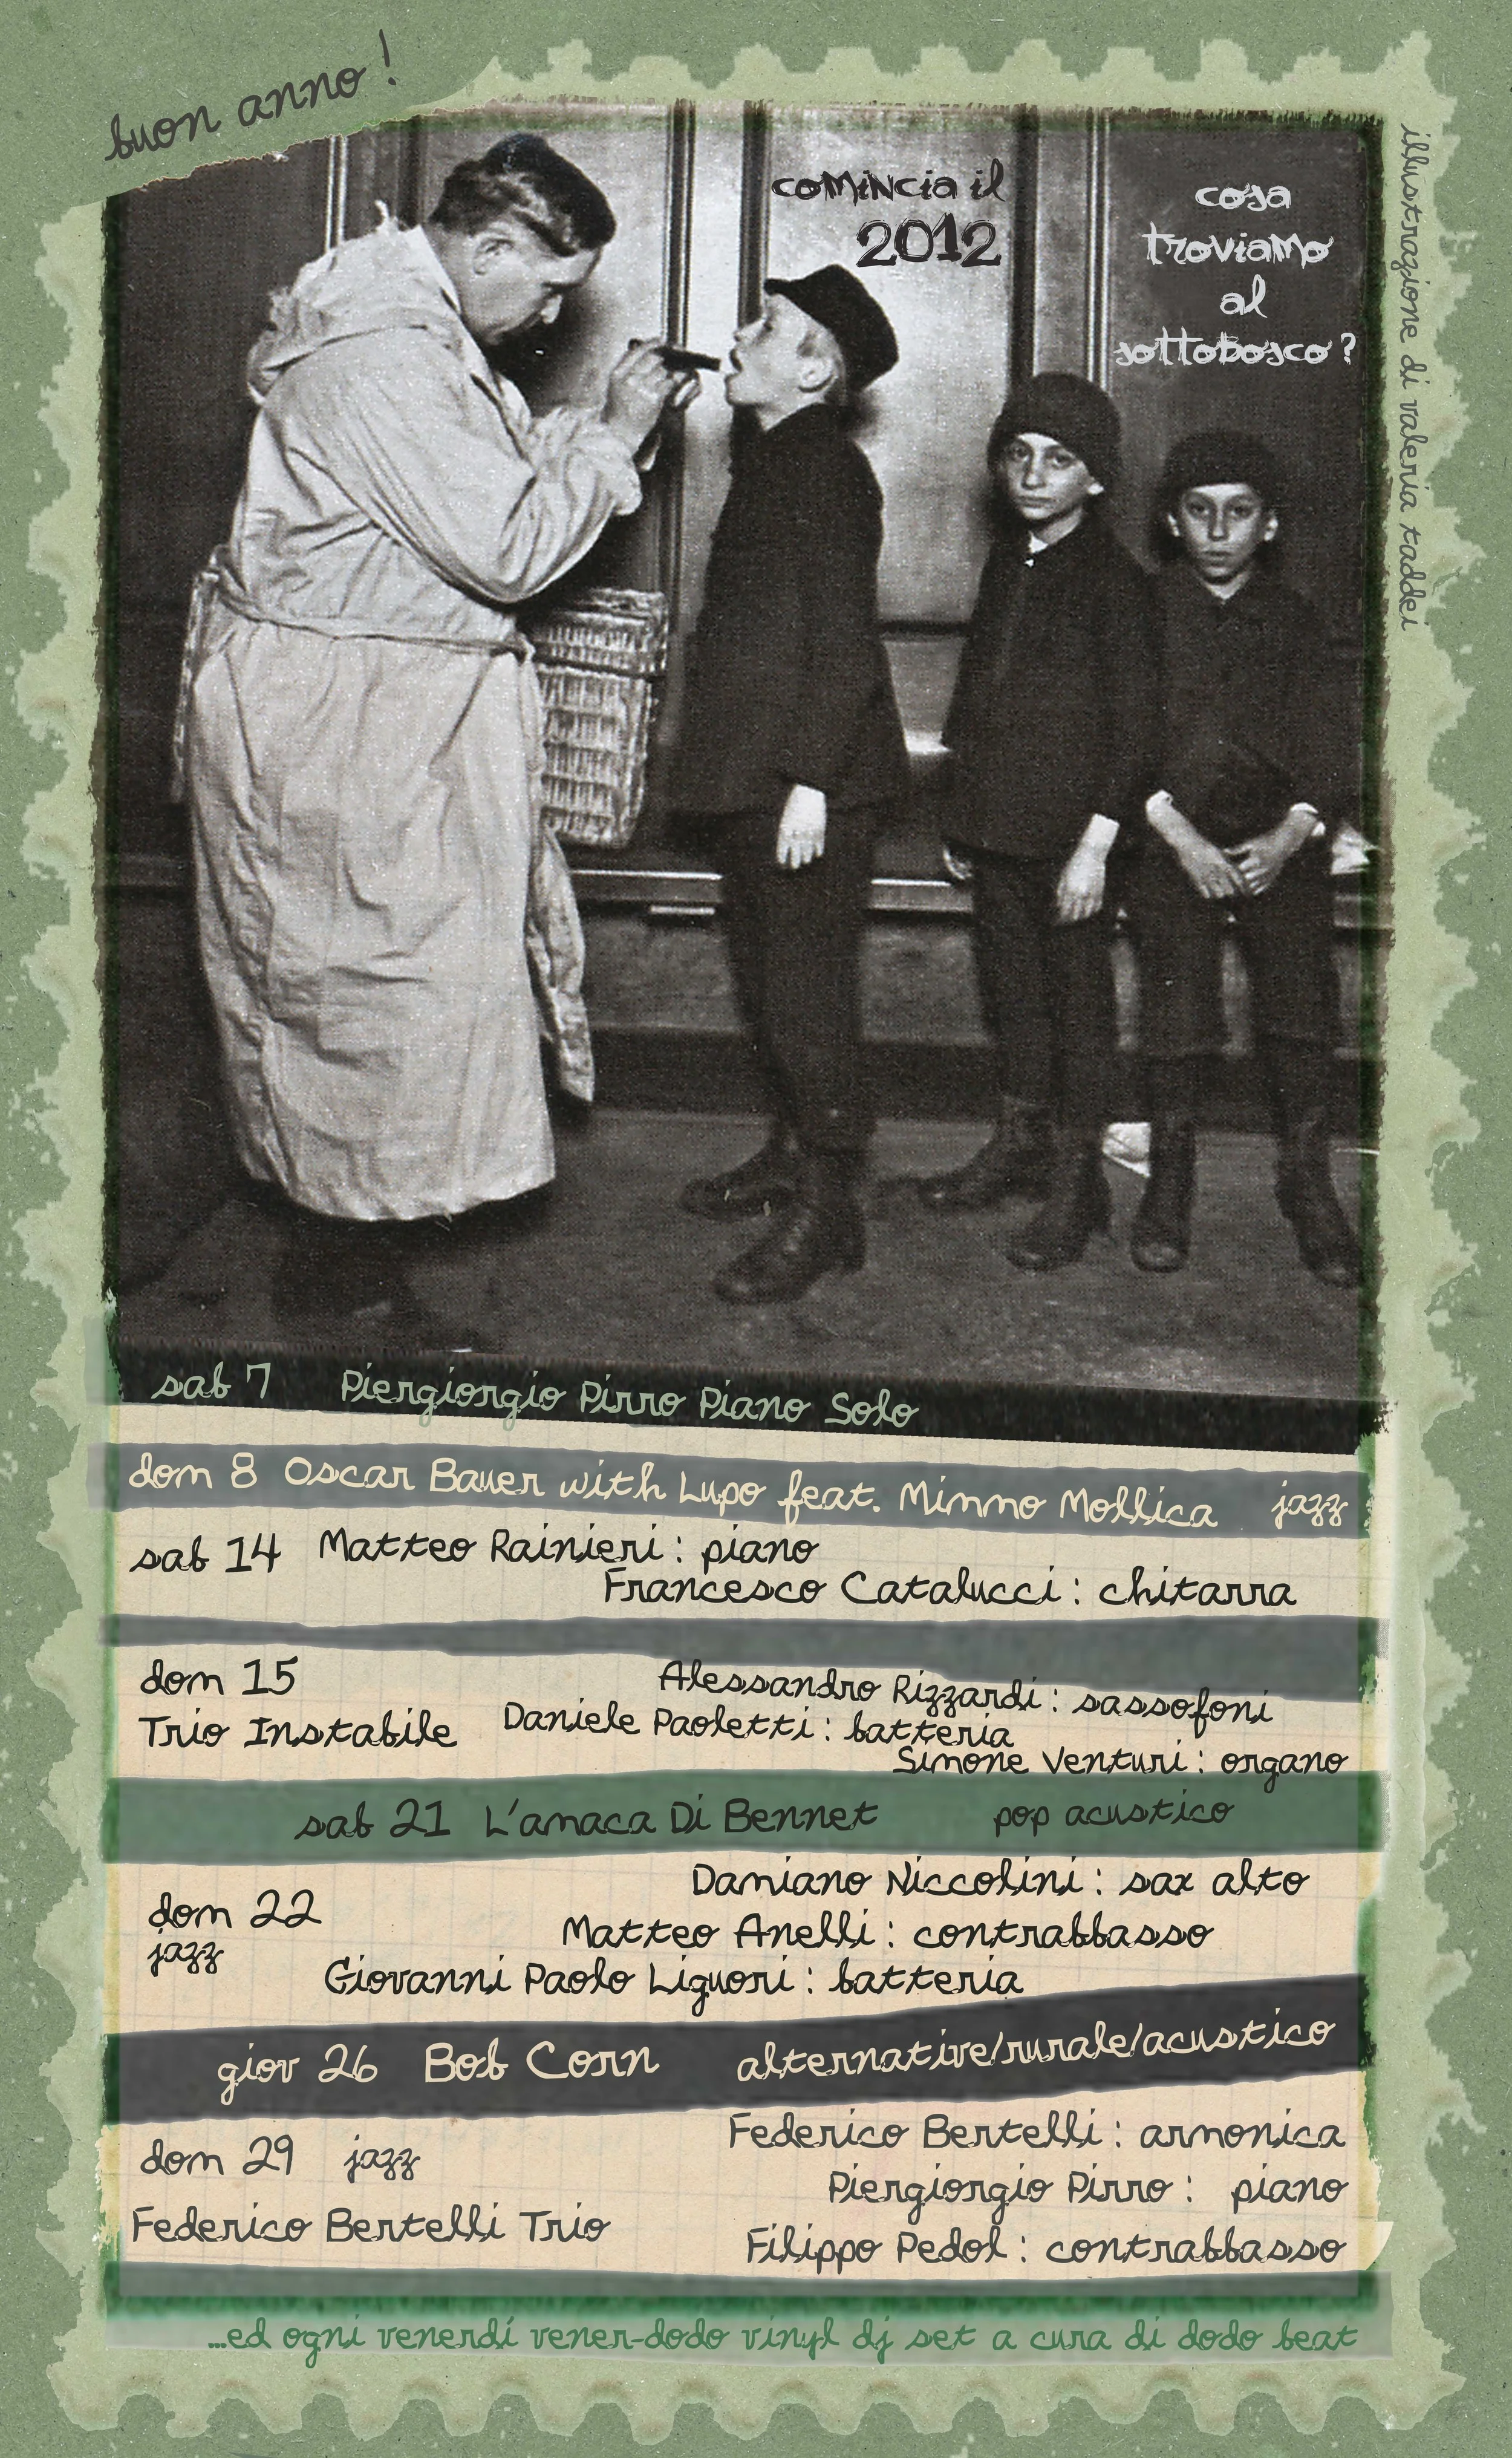 buon anno !
comincia il
2012
cosa
troviamo
al
sottobosco ?
illustrazione di valeria taddei
sab 7 Piergiorgio Pirro Piano Solo
dom 8 Oscar Bauer with Lupo feat. Mimmo Mollica jazz
sab 14 Matteo Rainieri : piano
Francesco Catalucci : chitarra
dom 15
Trio Instabile
Alessandro Rizzardi : sassofoni
Daniele Paoletti : batteria
Simone Venturi : organo
sab 21 L'amaca Di Bennet pop acustico
dom 22
jazz
Damiano Niccolini : sax alto
Matteo Anelli : contrabbasso
Giovanni Paolo Liguori : batteria
giov 26 Bob Corn alternative/rurale/acustico
dom 29 jazz
Federico Bertelli Trio
Federico Bertelli : armonica
Piergiorgio Pirro : piano
Filippo Pedol : contrabbasso
...ed ogni venerdí vener-dodo vinyl dj set a cura di dodo beat